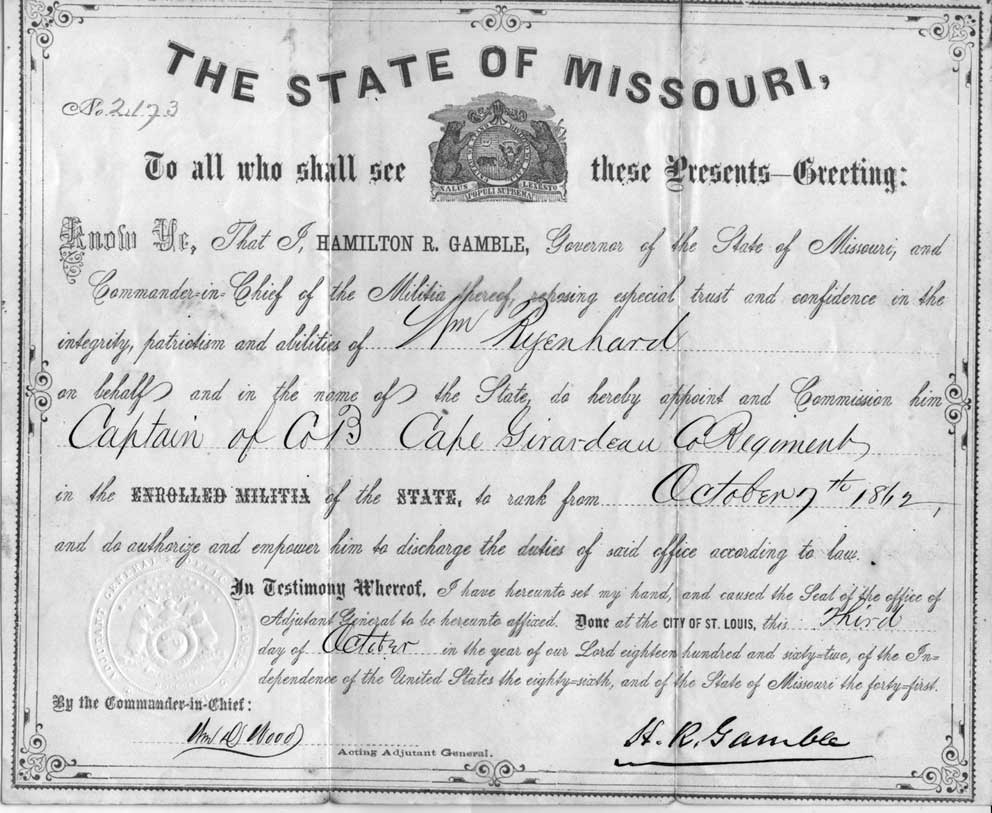 THE STATE OF MISSOURI,
No. 2173
To all who shall see these Presents—Greeting:
SALUS POPULI SUPREMA LEX ESTO
Know Ye, That I, HAMILTON R. GAMBLE, Governor of the State of Missouri, and
Commander-in-Chief of the Militia thereof, reposing especial trust and confidence in the
integrity, patriotism and abilities of Wm Ryenhard
on behalf and in the name of the State, do hereby appoint and Commission him
Captain of Co B Cape Girardeau Co Regiment
in the ENROLLED MILITIA of the STATE, to rank from October 7th 1862,
and do authorize and empower him to discharge the duties of said office according to law.
In Testimony Whereof, I have hereunto set my hand, and caused the Seal of the office of
Adjutant General to be hereunto affixed. Done at the CITY OF ST. LOUIS, this Third
day of October in the year of our Lord eighteen hundred and sixty-two, of the In-
dependence of the United States the eighty-sixth, and of the State of Missouri the forty-first.
By the Commander-in-Chief:
Wm D Wood
Acting Adjutant General.
H. R. Gamble